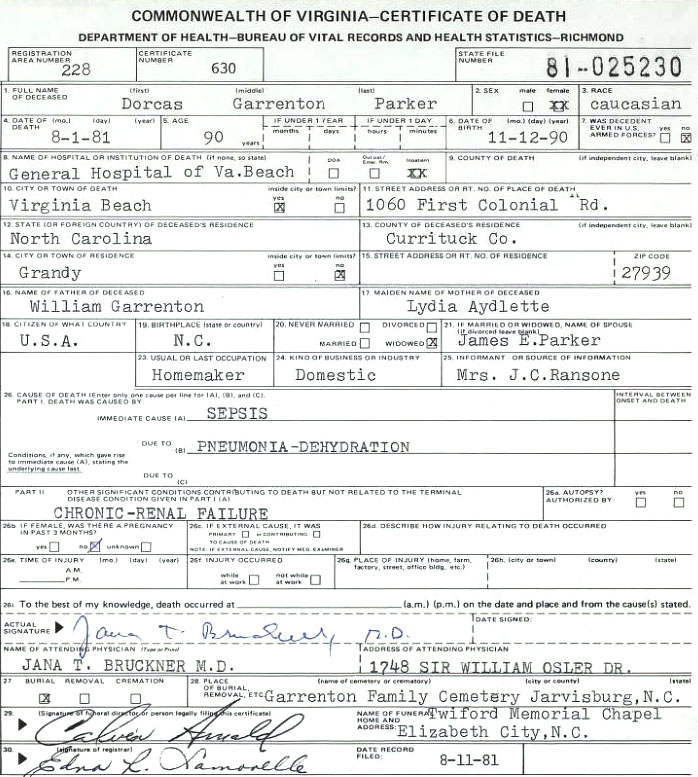 COMMONWEALTH OF VIRGINIA—CERTIFICATE OF DEATH
DEPARTMENT OF HEALTH—BUREAU OF VITAL RECORDS AND HEALTH STATISTICS—RICHMOND
REGISTRATION AREA NUMBER 228 CERTIFICATE NUMBER 630 STATE FILE NUMBER 81-025230
1. FULL NAME OF DECEASED (first) (middle) (last) 2. SEX male female 3. RACE
Dorcas Garrenton Parker XX caucasian
4. DATE OF DEATH (mo.) (day) (year) 5. AGE IF UNDER 1 YEAR IF UNDER 1 DAY 6. DATE OF BIRTH (mo.) (day) (year) 7. WAS DECEDENT EVER IN U.S. ARMED FORCES? yes no
8-1-81 90 years months days hours minutes 11-12-90 X
8. NAME OF HOSPITAL OR INSTITUTION OF DEATH (if none, so state) DOA Outpat/Emer. Rm. Inpatient 9. COUNTY OF DEATH (if independent city, leave blank)
General Hospital of Va.Beach XX
10. CITY OR TOWN OF DEATH inside city or town limits? yes no 11. STREET ADDRESS OR RT. NO. OF PLACE OF DEATH
Virginia Beach X 1060 First Colonial Rd.
12. STATE (OR FOREIGN COUNTRY) OF DECEASED'S RESIDENCE 13. COUNTY OF DECEASED'S RESIDENCE (if independent city, leave blank)
North Carolina Currituck Co.
14. CITY OR TOWN OF RESIDENCE inside city or town limits? yes no 15. STREET ADDRESS OR RT. NO. OF RESIDENCE ZIP CODE
Grandy X 27939
16. NAME OF FATHER OF DECEASED 17. MAIDEN NAME OF MOTHER OF DECEASED
William Garrenton Lydia Aydlette
18. CITIZEN OF WHAT COUNTRY 19. BIRTHPLACE (state or country) 20. NEVER MARRIED DIVORCED 21. IF MARRIED OR WIDOWED, NAME OF SPOUSE (if divorced leave blank)
U.S.A. N.C. MARRIED WIDOWED X James E.Parker
23. USUAL OR LAST OCCUPATION 24. KIND OF BUSINESS OR INDUSTRY 25. INFORMANT - OR SOURCE OF INFORMATION
Homemaker Domestic Mrs. J.C.Ransone
26. CAUSE OF DEATH (Enter only one cause per line for (A), (B), and (C). INTERVAL BETWEEN ONSET AND DEATH
PART I. DEATH WAS CAUSED BY:
IMMEDIATE CAUSE (A) SEPSIS
DUE TO (B) PNEUMONIA-DEHYDRATION
Conditions, if any, which gave rise to immediate cause (A), stating the underlying cause last.
DUE TO (C)
PART II OTHER SIGNIFICANT CONDITIONS CONTRIBUTING TO DEATH BUT NOT RELATED TO THE TERMINAL DISEASE CONDITION GIVEN IN PART I (A) 26a. AUTOPSY? AUTHORIZED BY: yes no
CHRONIC-RENAL FAILURE
26b IF FEMALE, WAS THERE A PREGNANCY IN PAST 3 MONTHS? 26c. IF EXTERNAL CAUSE, IT WAS 26d. DESCRIBE HOW INJURY RELATING TO DEATH OCCURRED
PRIMARY or CONTRIBUTING
TO CAUSE OF DEATH
yes no X unknown NOTE: IF EXTERNAL CAUSE, NOTIFY MED. EXAMINER
26e. TIME OF INJURY (mo.) (day) (year) 26f. INJURY OCCURRED 26g. PLACE OF INJURY (home, farm, factory, street, office bldg., etc.) 26h. (city or town) (county) (state)
A.M.
P.M. while at work not while at work
26i. To the best of my knowledge, death occurred at (a.m.) (p.m.) on the date and place and from the cause(s) stated.
ACTUAL SIGNATURE Jana T. Bruckner, M.D. DATE SIGNED:
NAME OF ATTENDING PHYSICIAN (Type or Print) ADDRESS OF ATTENDING PHYSICIAN
JANA T. BRUCKNER M.D. 1748 SIR WILLIAM OSLER DR.
27. BURIAL REMOVAL CREMATION 28. PLACE OF BURIAL, REMOVAL, ETC. (name of cemetery or crematory) (city or county) (state)
X Garrenton Family Cemetery Jarvisburg,N.C.
29. (Signature of funeral director or person legally filing this certificate) NAME OF FUNERAL HOME AND ADDRESS: Twiford Memorial Chapel
Calvin Arnold Elizabeth City,N.C.
30. (signature of registrar) DATE RECORD FILED: 8-11-81
Edna L.